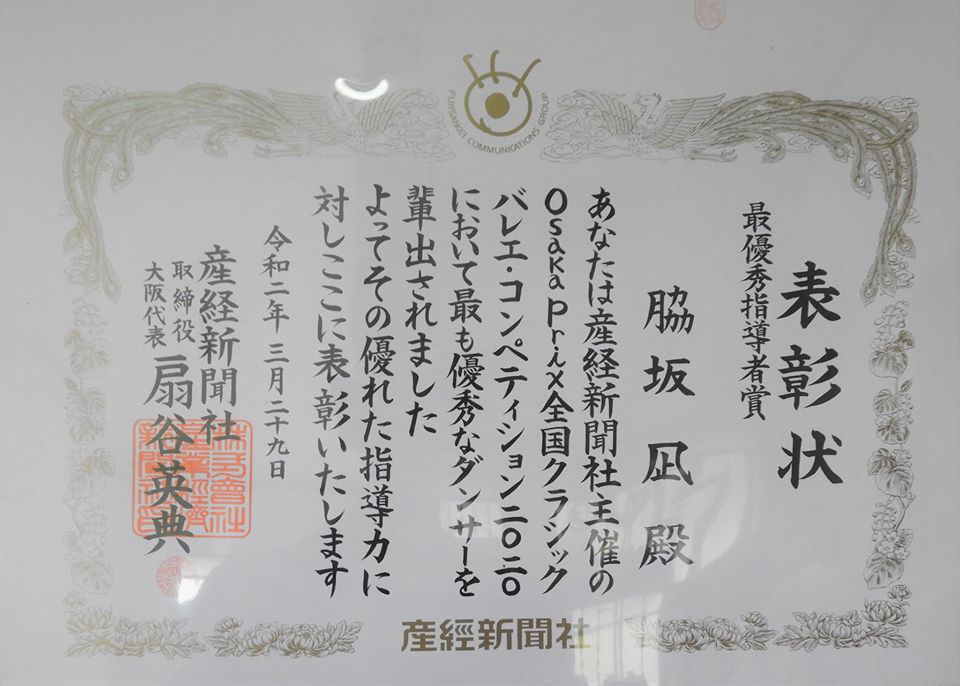 FUJISANKEI COMMUNICATIONS GROUP
表彰状
最優秀指導者賞
脇坂凪殿
あなたは産経新聞社主催の
Osaka Prix全国クラシック
バレエ・コンペティション二〇二〇
において最も優秀なダンサーを
輩出されました
よってその優れた指導力に
対しここに表彰いたします
令和二年 三月二十九日
産経新聞社
取締役
大阪代表
扇谷英典
産經新聞社